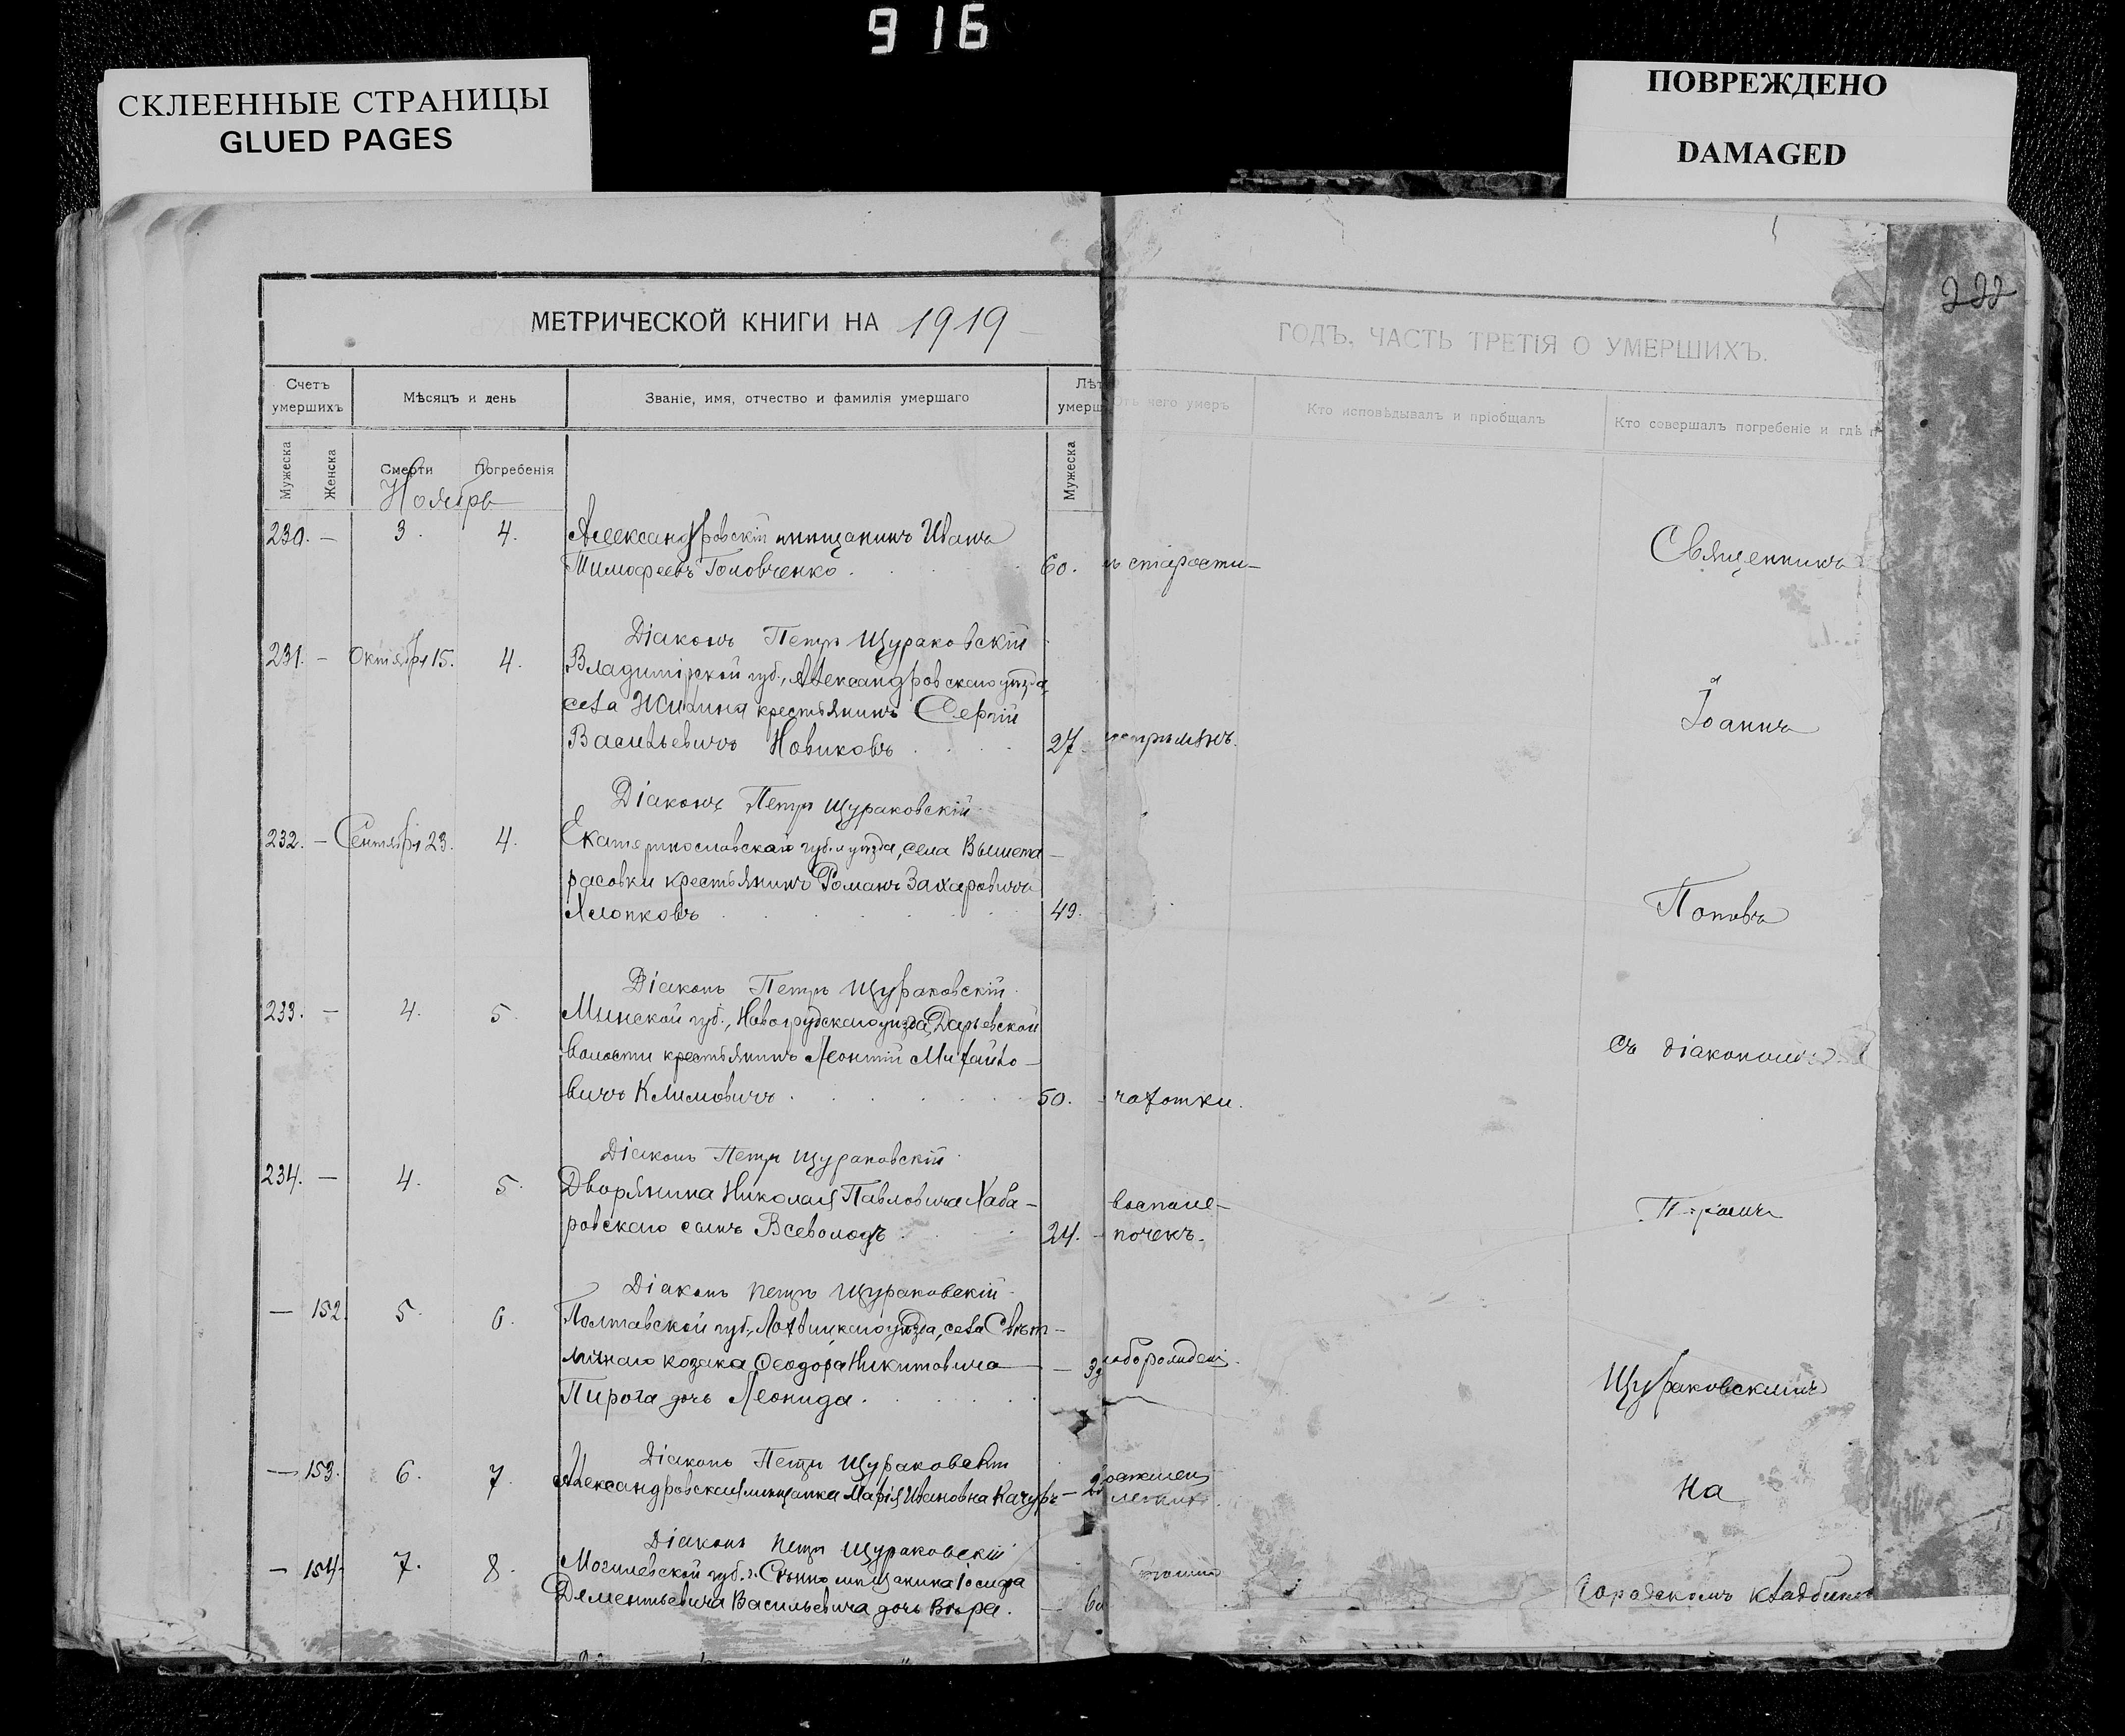 916
СКЛЕЕННЫЕ СТРАНИЦЫ
GLUED PAGES
ПОВРЕЖДЕНО
DAMAGED
222
МЕТРИЧЕСКОЙ КНИГИ НА 1919
ГОДЪ, ЧАСТЬ ТРЕТІЯ О УМЕРШИХЪ.
Счетъ умершихъ
Мѣсяцъ и день
Званіе, имя, отчество и фамилія умершаго
Лѣт
умерш
Отъ чего умеръ
Кто исповѣдывалъ и пріобщалъ
Кто совершалъ погребеніе и гдѣ п
Мужеска
Женска
Смерти
Погребенія
Мужеска
Ноябрь
230. — 3. 4. Александровскій мѣщанинъ Иванъ
Тимофеевъ Головченко . 60. старости —
Священникъ
Діаконъ Петръ Щураковскій
231. — Октября 15. 4. Владимірской губ., Александровскаго уѣзда,
села Жилина крестьянинъ Сергій
Васильевичъ Новиковъ . 27.
Іоаннъ
Діаконъ Петръ Щураковскій
232. — Сентября 23. 4. Екатеринославской губ. и уѣзда, села Вышета-
расовки крестьянинъ Романъ Захаровичъ
49.
Поповъ
Діаконъ Петръ Щураковскій
233. — 4. 5. Минской губ., Новогрудскаго уѣзда, Даревской
волости крестьянинъ Леонтій Михайло-
вичъ Климовичъ . 50. чахотки.
съ діакономъ
Діаконъ Петръ Щураковскій
234. — 4. 5. Дворянина Николая Павловича Хаба-
ровскаго сынъ Всеволодъ . 24.
воспале-
почекъ.
Петромъ
Діаконъ Петръ Щураковскій
— 152. 5. 6. Полтавской губ., Лохвицкаго уѣзда, села Свѣт-
личнаго козака Ѳеодора Никитовича —
Пирога дочь Леонида .
Щураковскимъ
Діаконъ Петръ Щураковскій
— 153. 6. 7. Александровская мѣщанка Марія Ивановна Качуръ —
на
Діаконъ Петръ Щураковскій
— 154. 7. 8. Могилевской губ. г. Сѣнно мѣщанина Іосифа
Дементьевича Васильевича дочь Вѣра . —
городскомъ кладбищѣ